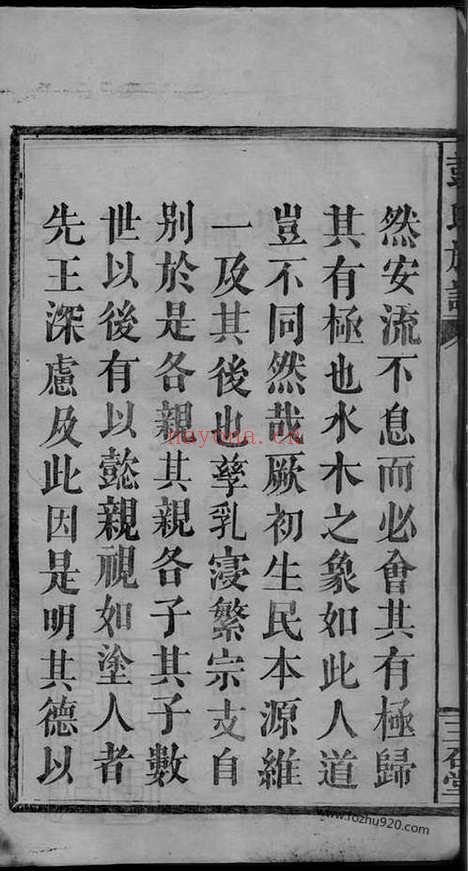 然安流不息而必會其有極歸
其有極也水木之象如此人道
豈不同然哉厥初生民本源維
一及其後也孳乳寖繁宗支自
别於是各親其親各子其子數
世以後有以懿親視如塗人者
先王深慮及此因是明其德以
nayona.cn
www.fozhu920.com